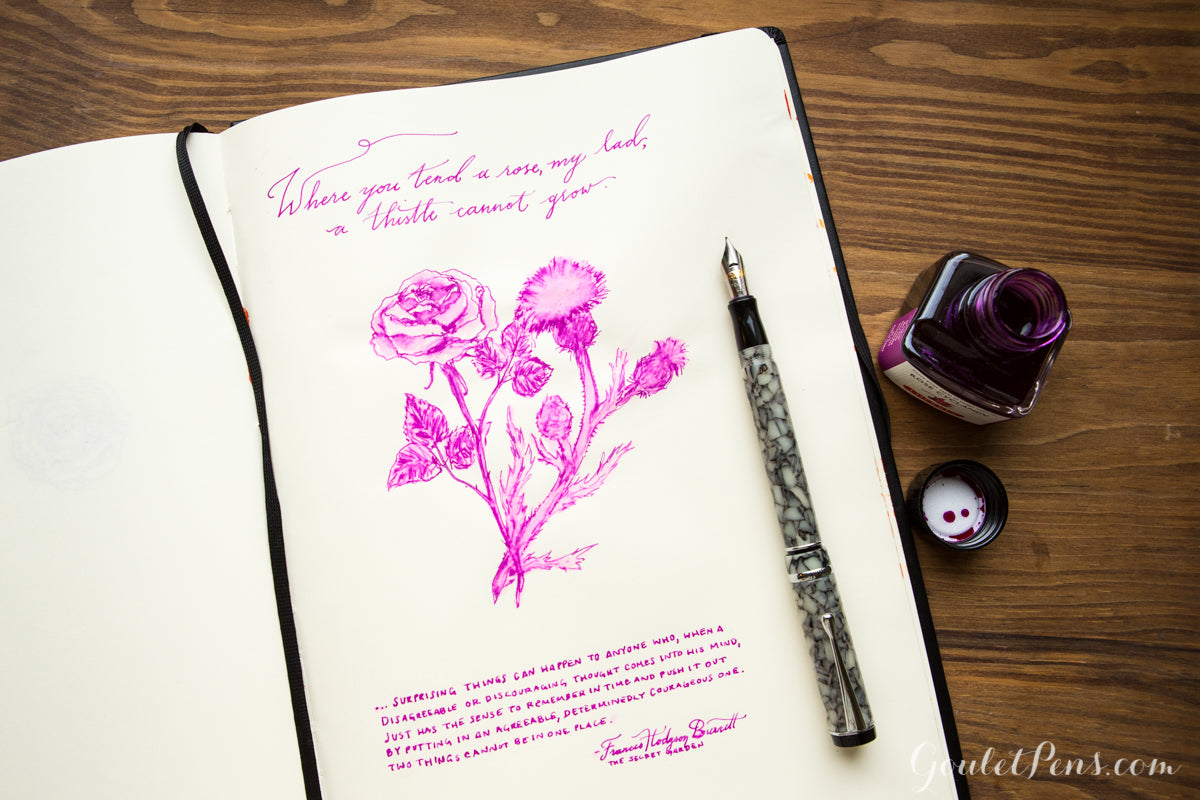 Where you tend a rose, my lad,
a thistle cannot grow.
... SURPRISING THINGS CAN HAPPEN TO ANYONE WHO, WHEN A
DISAGREEABLE OR DISCOURAGING THOUGHT COMES INTO HIS MIND,
JUST HAS THE SENSE TO REMEMBER IN TIME AND PUSH IT OUT
BY PUTTING IN AN AGREEABLE, DETERMINEDLY COURAGEOUS ONE.
TWO THINGS CANNOT BE IN ONE PLACE.
-Frances Hodgson Burnett
THE SECRET GARDEN
ROSE
GouletPens.com